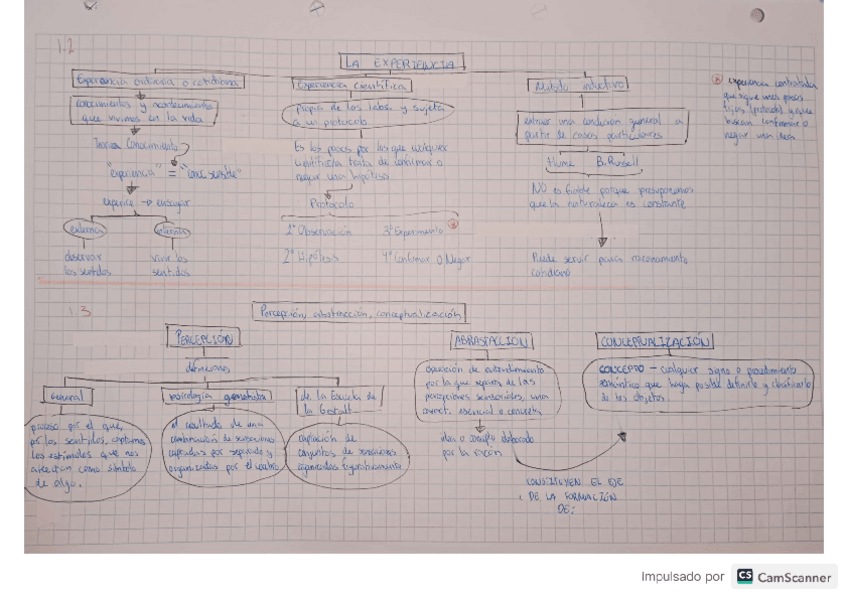 1.2
LA EXPERIENCIA
Experiencia ordinaria o cotidiana
conocimientos y acontecimientos
que vivimos en la vida
Teoría Conocimiento
"experiencia" =
experire → ensayar
externa
interna
observar
los sentidos
vivir los
sentidos
Experiencia científica
propia de los labs. y sujeta
a un protocolo
Es los pasos por los que cualquier
científico/a trata de confirmar o
negar una hipótesis
Protocolo
1º Observación
3º Experimento
2º Hipótesis
4º Confirmar o Negar
Método inductivo
extraer una condición general a
partir de casos particulares
Hume
B. Russell
NO es fiable porque presuponemos
que la naturaleza es constante
Puede servir para razonamiento
cotidiano
experiencia controlada
que sigue unos pasos
fijos (protocolo) y que
buscan confirmar o
negar una idea
1.3
Percepción, abstracción, conceptualización
PERCEPCIÓN
definiciones
General
proceso por el que,
por los sentidos, captamos
los estímulos que nos
afectan como símbolo
de algo.
psicología
el resultado de una
combinación de sensaciones
captadas por separado y
organizadas por el cerebro
de la Escuela de
la Gestalt
captación de
conjuntos de sensaciones
organizadas
ABRASTACCION
operación de entendimiento
por la que separa de las
percepciones sensoriales, una
caract. esencial o concreta
idea o concepto elaborado
por la razón
CONSTITUYEN EL EJE
DE LA FORMACIÓN
DE:
CONCEPTUALIZACIÓN
CONCEPTO - cualquier signo o procedimiento
semántico que haga posible definirlo y clasificarlo
de los objetos.
Impulsado por CS CamScanner